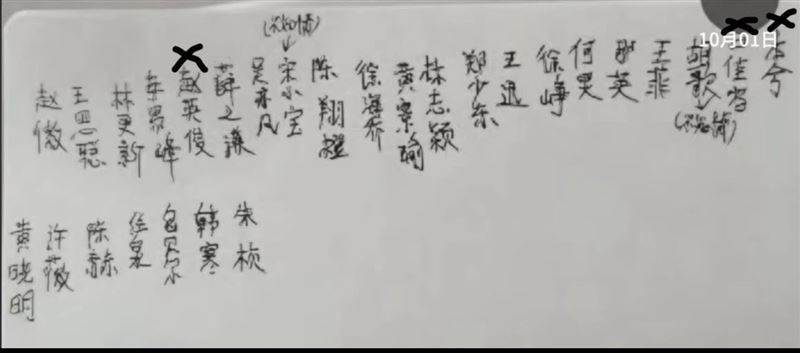 10月01日
胡歌
(不知情)
王菲
那英
何炅
徐峥
王迅
郑少东
林志颖
黄景瑜
徐海乔
陈翔
(不知情)
宋小宝
吴亦凡
薛之谦
赵英俊
林更新
王思聪
赵薇
朱桢
韩寒
包贝尔
任泉
陈赫
许薇
黄晓明